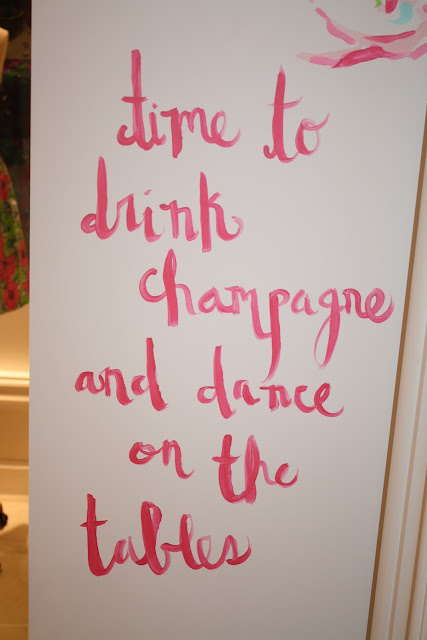 time to
drink
champagne
and dance
on the
tables